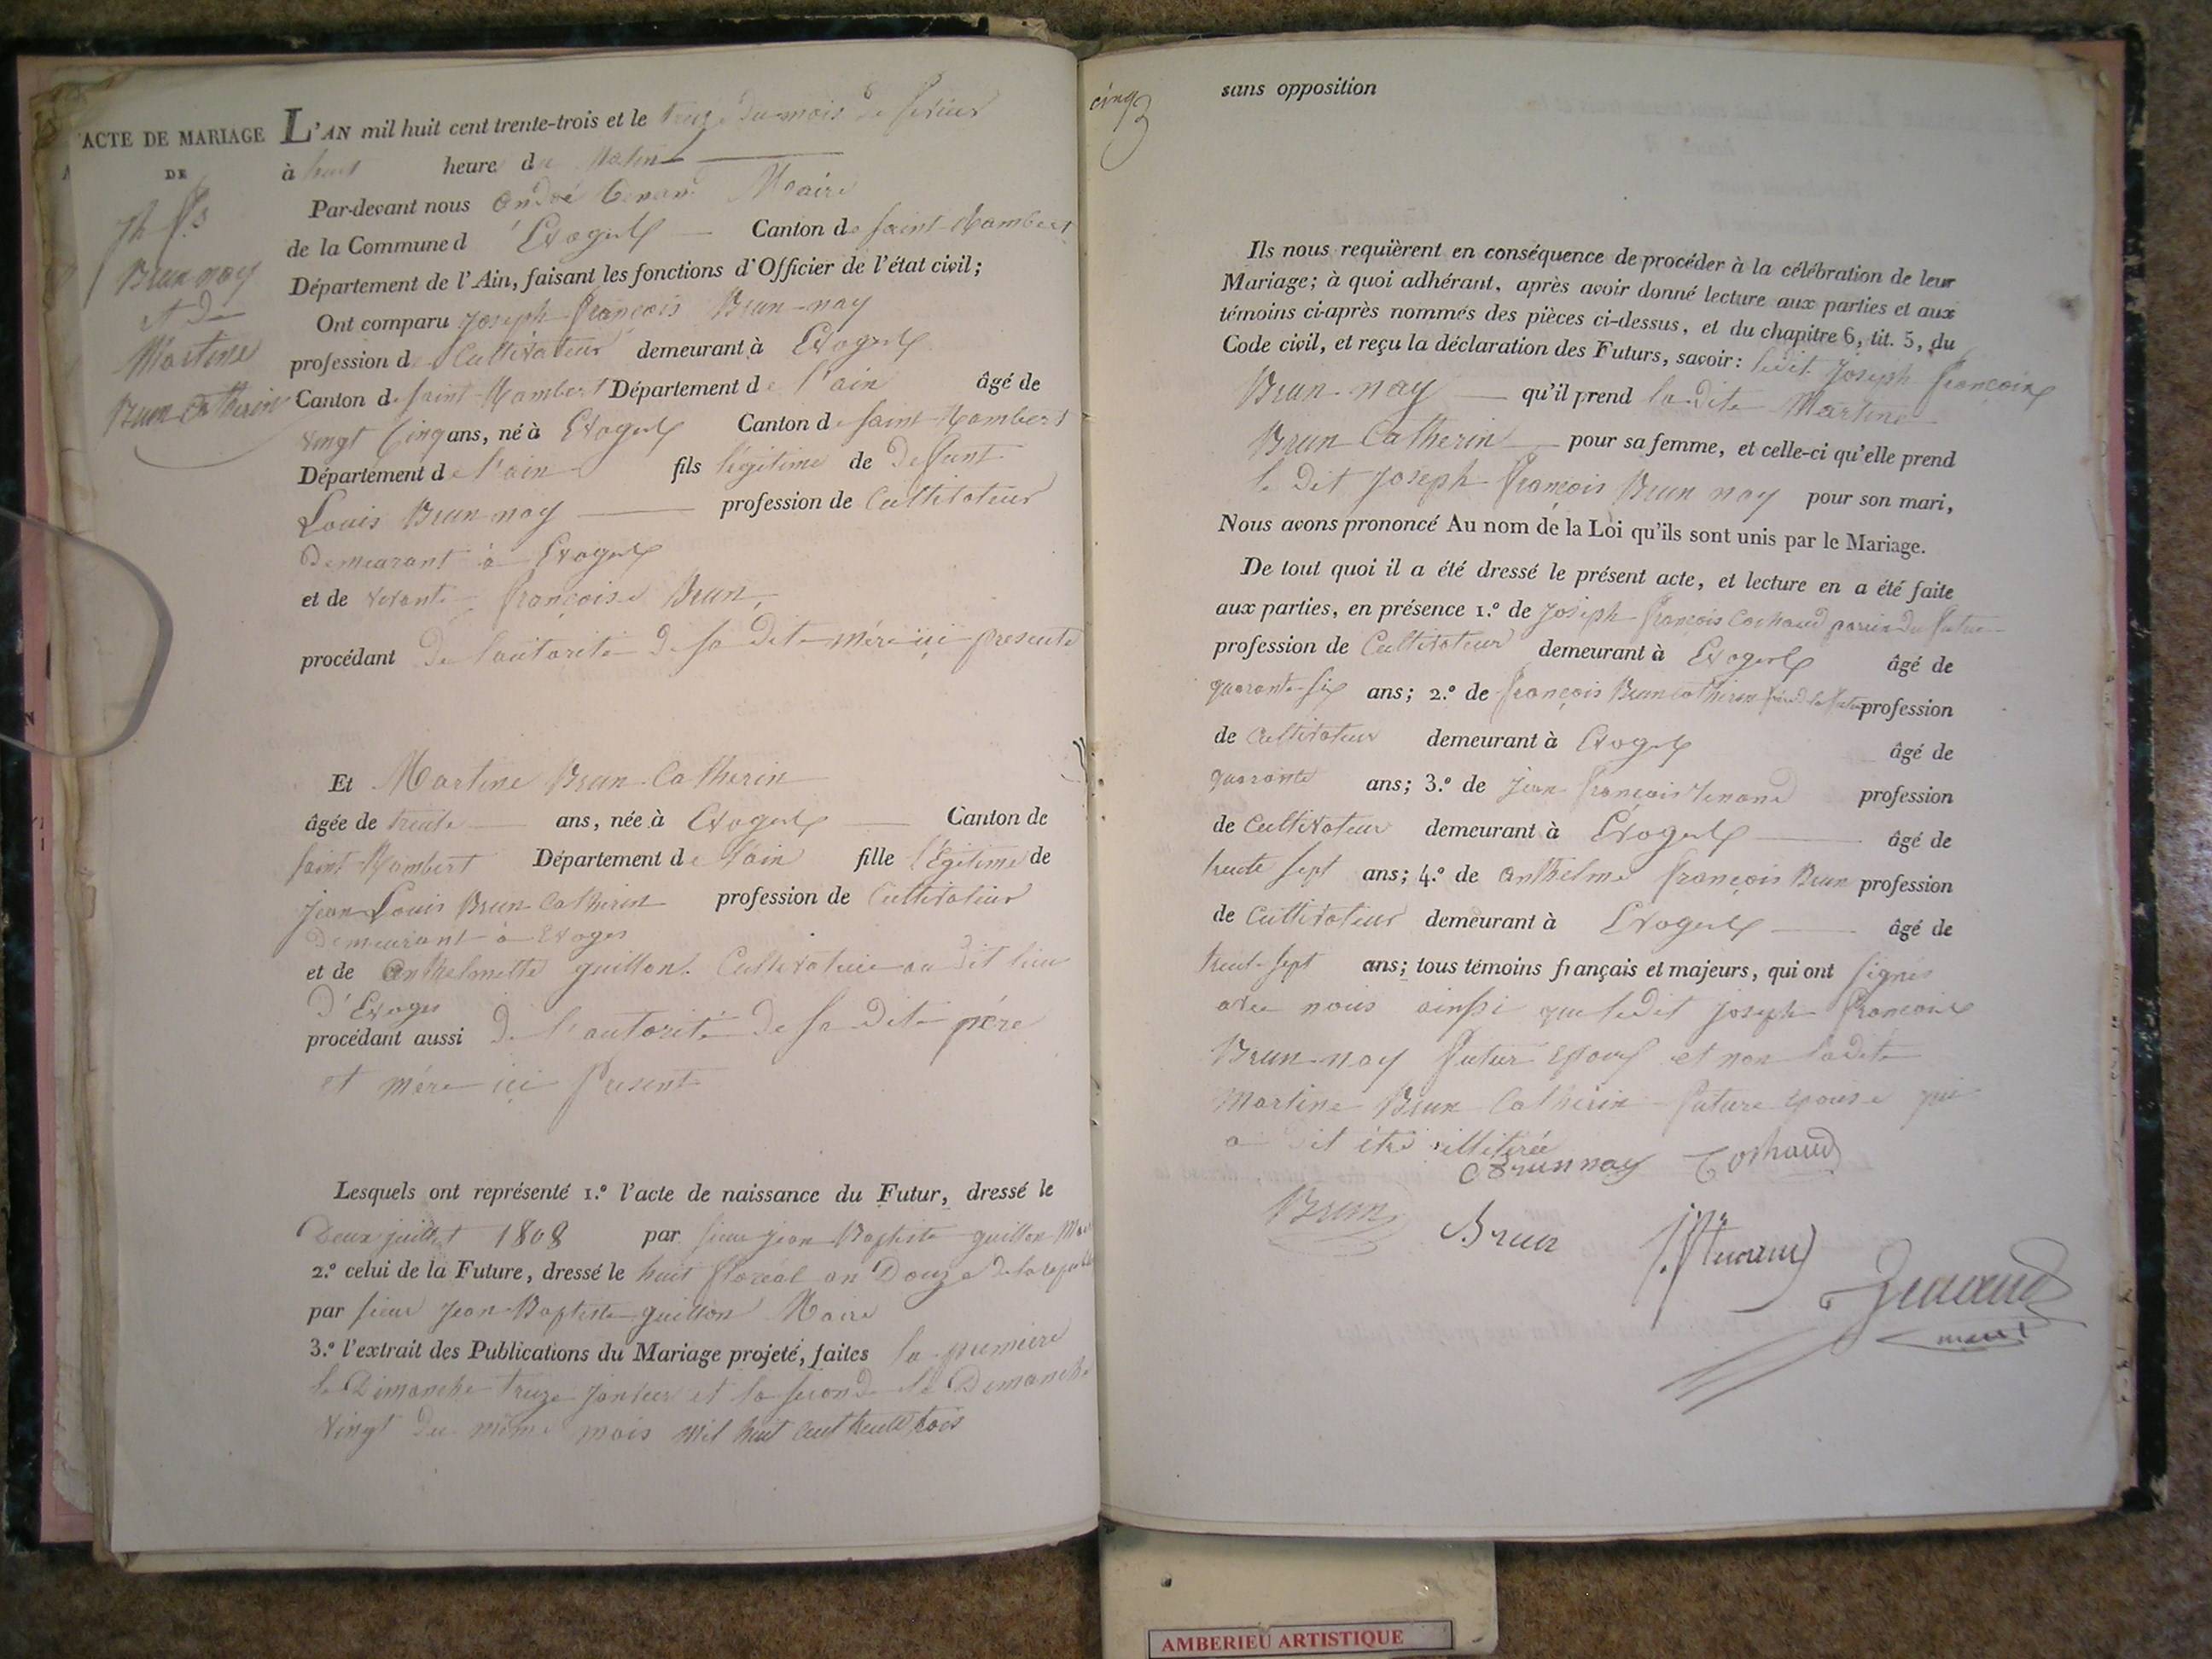 ACTE DE MARIAGE
DE
Jh fs
Brun-nay
et de
Martine
Brun-Catherin
L'AN mil huit cent trente-trois et le treize du mois de
à huit heure du Matin
Par-devant nous André Maire
de la Commune d'Evoges Canton de Saint-Rambert
Département de l'Ain, faisant les fonctions d'Officier de l'état civil;
Ont comparu Joseph françois Brun-nay
profession de Cultivateur demeurant à Evoges
Canton de Saint-Rambert Département de l'ain âgé de
vingt Cinq ans, né à Evoges Canton de Saint-Rambert
Département de l'ain fils légitime de Defunt
Louis Brun-nay profession de Cultivateur
Demeurant à Evoges
et de vivante françoise Brun,
procédant De l'autorité De sa Dite mère içi presente
Et Martine Brun-Catherin
âgée de trente ans, née à Evoges Canton de
Saint-Rambert Département de l'ain fille légitime de
Jean Louis Brun-Catherin profession de Cultivateur
Demeurant à Evoges
et de Anthelmette guillon. au dit lieu
D'Evoges
procédant aussi De l'autorité De sa Dite père
et mère içi Present
Lesquels ont représenté 1.º l'acte de naissance du Futur, dressé le
Deux juillet 1808 par sieur jean Baptiste guillon
2.º celui de la Future, dressé le huit floréal an Douze de la
par sieur Jean-Baptiste guillon Maire
3.º l'extrait des Publications du Mariage projeté, faites la premiere
le Dimanche treize janvier et la seconde le Dimanche
vingt du même mois mil huit cent trente trois
cinq
sans opposition
Ils nous requièrent en conséquence de procéder à la célébration de leur
Mariage; à quoi adhérant, après avoir donné lecture aux parties et aux
témoins ci-après nommés des pièces ci-dessus, et du chapitre 6, tit. 5, du
Code civil, et reçu la déclaration des Futurs, savoir: ledit Joseph françois
Brun-nay qu'il prend la dite Martine
Brun Catherin pour sa femme, et celle-ci qu'elle prend
le Dit Joseph françois Brun nay pour son mari,
Nous avons prononcé Au nom de la Loi qu'ils sont unis par le Mariage.
De tout quoi il a été dressé le présent acte, et lecture en a été faite
aux parties, en présence 1.º de Joseph françois du futur
profession de Cultivateur demeurant à Evoges âgé de
quarante-six ans; 2.º de françois Brun Catherin profession
de Cultivateur demeurant à Evoges âgé de
quarante ans; 3.º de Jean françois profession
de Cultivateur demeurant à Evoges âgé de
trente sept ans; 4.º de Anthelme françois Brun profession
de Cultivateur demeurant à Evoges âgé de
trente-sept ans; tous témoins français et majeurs, qui ont signés
avec nous ainsi que ledit joseph françois
Brun-nay futur Epoux et non ladite
Martine Brun Catherin future epouse qui
a Dit être illiterée
Brunnay
Brun Brun
maire
AMBERIEU ARTISTIQUE